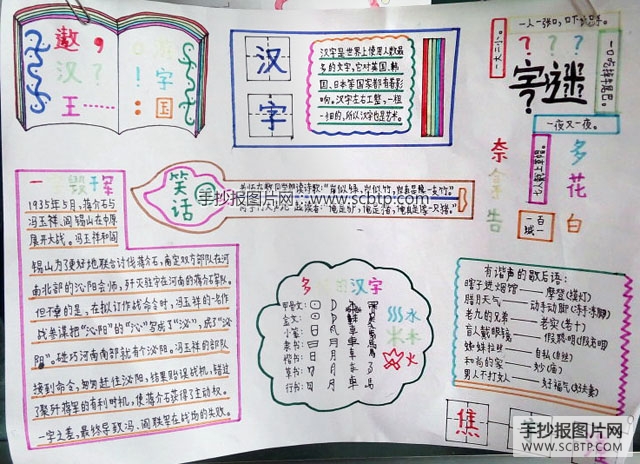 遨游
汉字
王国
汉字
汉字是世界上使用人数最
多的文字，它对英国、韩
国、日本等国家都有着影
响。汉字左右工整，一粗
一细的，所以汉字也是艺术。
一人一张口，口下长只手。
字谜
一大二小。
一口咬掉牛尾巴。
一夜又一夜。
七人头上草帽。
一百减一
奈
余
告
多
花
白
笑话
手抄报图片网 - www.scbtp.com
一字毁千军
1935年5月，蒋介石与
冯玉祥、阎锡山在中原
展开大战。冯玉祥和阎
锡山为了更好地联合讨伐蒋介石，商定双方部队在河
南北部的沁阳会师，歼灭驻守在河南的蒋介石部队。
但不幸的是，在拟订作战命令时，冯玉祥的一名作
战参谋把“沁阳”的“沁”写成了“泌”，成了“泌
阳”。碰巧河南南部就有个泌阳。冯玉祥的部队
接到命令，匆匆赶往泌阳，结果贻误战机，错过
了聚歼蒋军的有利时机，使蒋介石获得了主动权。
一字之差，最终导致冯、阎联军在战场的失败。
汉字
甲骨文：
金文：
小篆：
隶书：
楷书：
草书：
行书：
水
木
火
有谐声的歇后语：
瞎子进烟馆——摸登(摸灯)
腊月天气——动手动脚(冻手冻脚)
老九的兄弟——老实(老十)
盲人戴眼镜——假聪明
蜘蛛拉丝——自私(自丝)
和尚的家——妙(庙)
男人不打女人——好福气
焦
手抄报图片网
WWW.SCBTP.COM